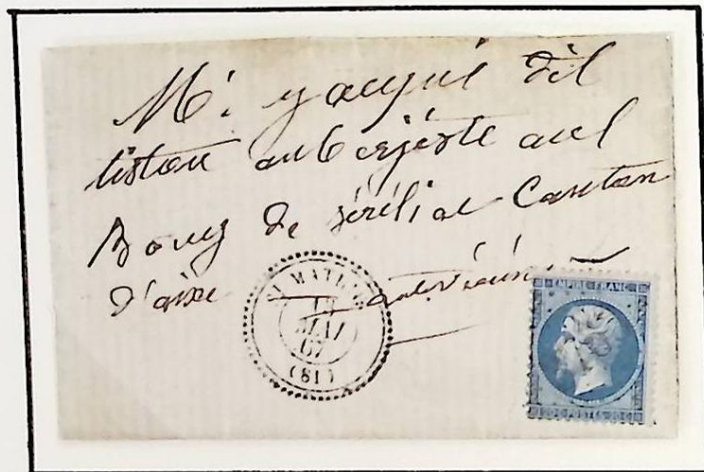 Mr yacque dit
liston aubergiste aul
Bourg de séréliac Canton
d'aixe hauteviéune
18
MAI
67
(81)
EMPIRE FRANC
20 C POSTES 20 C